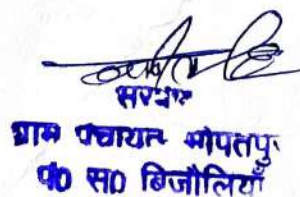 सरपंच
ग्राम पंचायत भोपतपु
पं० स० बिजौलियाँ